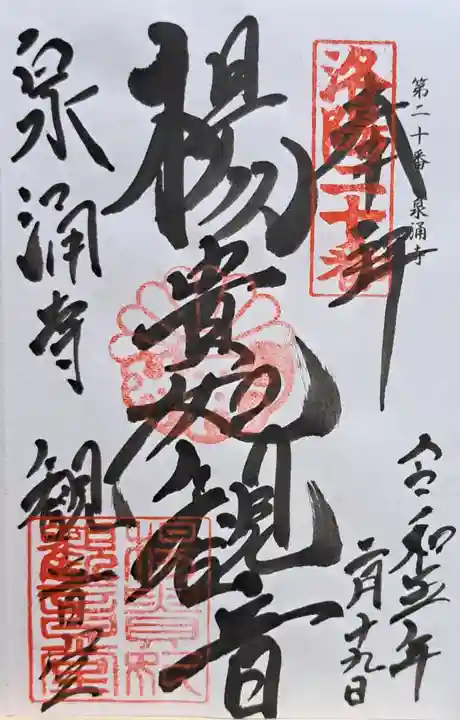 第二十番 泉涌寺
奉拝
洛陽二十番
令和五年
二月十九日
楊貴妃観音
泉涌寺
観音堂
楊貴妃
観音堂